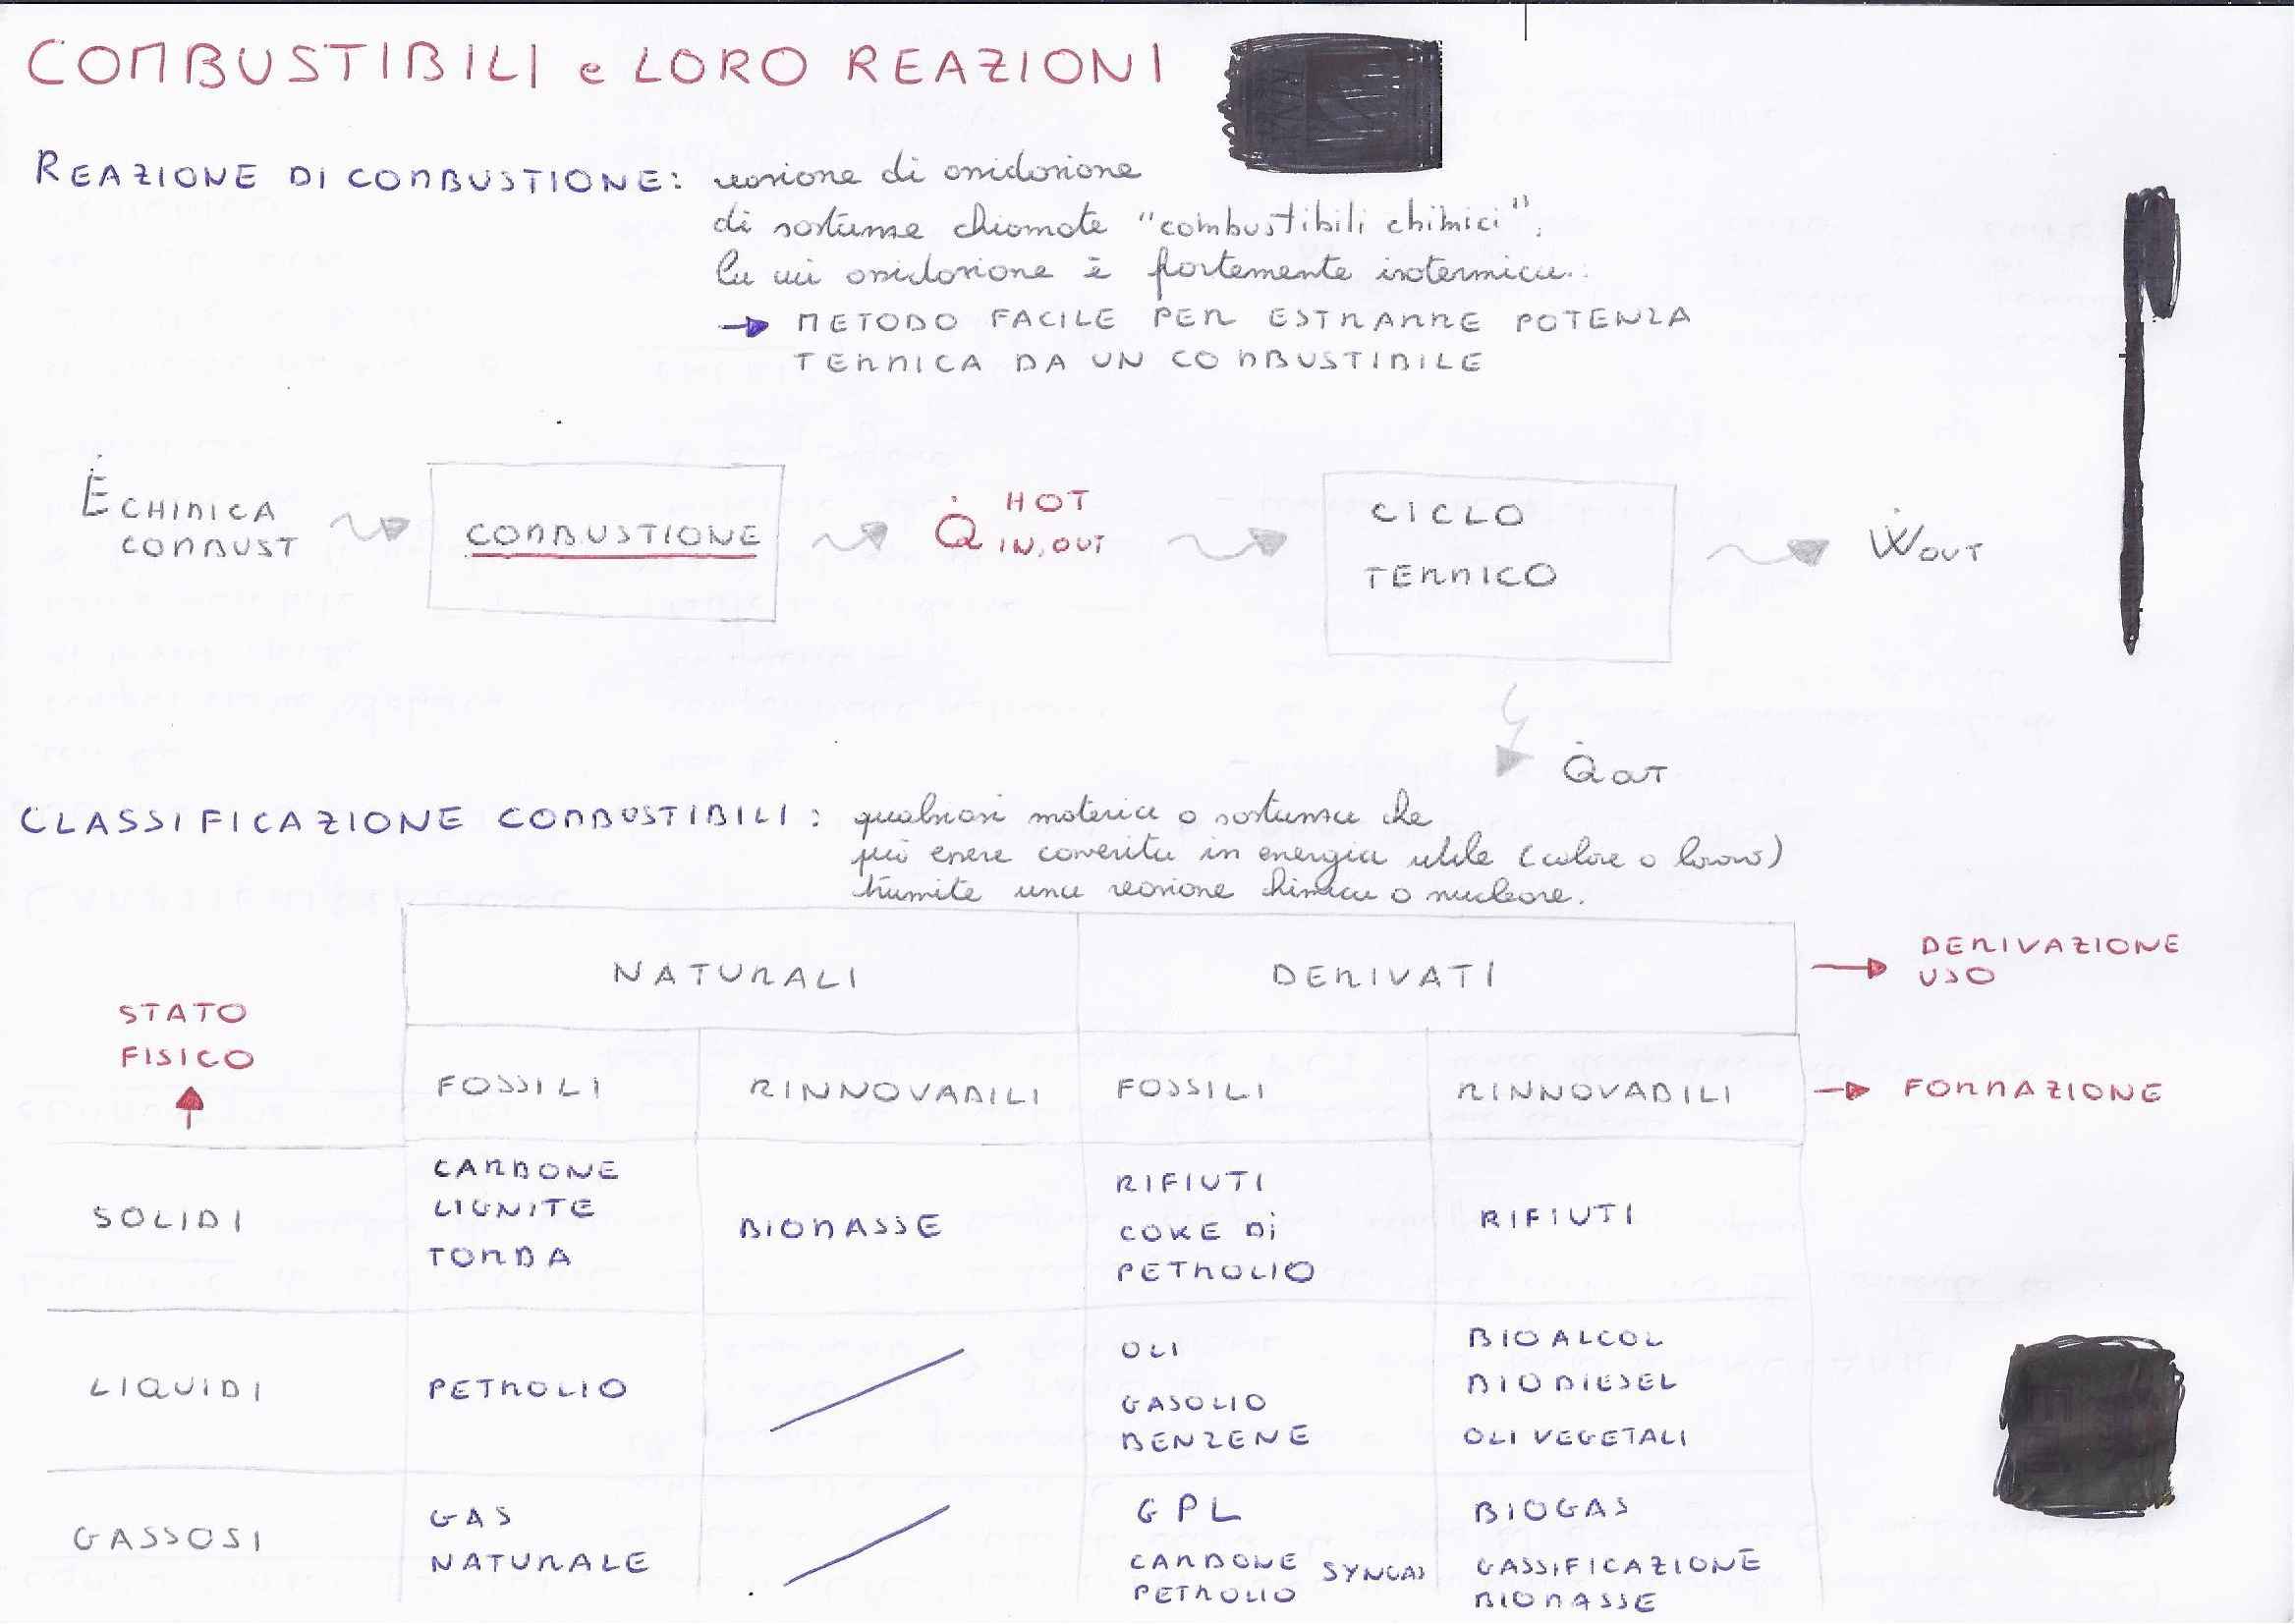 COMBUSTIBILI e LORO REAZIONI
REAZIONE DI COMBUSTIONE: reazione di ossidazione
di sostanze chiamate "combustibili chimici",
la cui ossidazione è fortemente isotermica.
→ METODO FACILE PER ESTRARRE POTENZA
TERMICA DA UN COMBUSTIBILE
Ė CHIMICA COMBUST
COMBUSTIONE
Q̇ HOT IN,OUT
CICLO
TERMICO
Ẇ OUT
Q̇ OUT
CLASSIFICAZIONE COMBUSTIBILI: qualsiasi materia o sostanza che
può essere convertita in energia utile (calore o lavoro)
tramite una reazione chimica o nucleare.
NATURALI DERIVATI → DERIVAZIONE
USO
STATO
FISICO
FOSSILI RINNOVABILI FOSSILI RINNOVABILI → FORMAZIONE
SOLIDI
CARBONE
LIGNITE
TORBA
BIOMASSE
RIFIUTI
COKE Di
PETROLIO
RIFIUTI
LIQUIDI
PETROLIO
OLI
GASOLIO
BENZENE
BIOALCOL
BIODIESEL
OLI VEGETALI
GASSOSI
GAS
NATURALE
GPL
CARBONE
PETROLIO
SYNGAS
BIOGAS
GASSIFICAZIONE
BIOMASSE